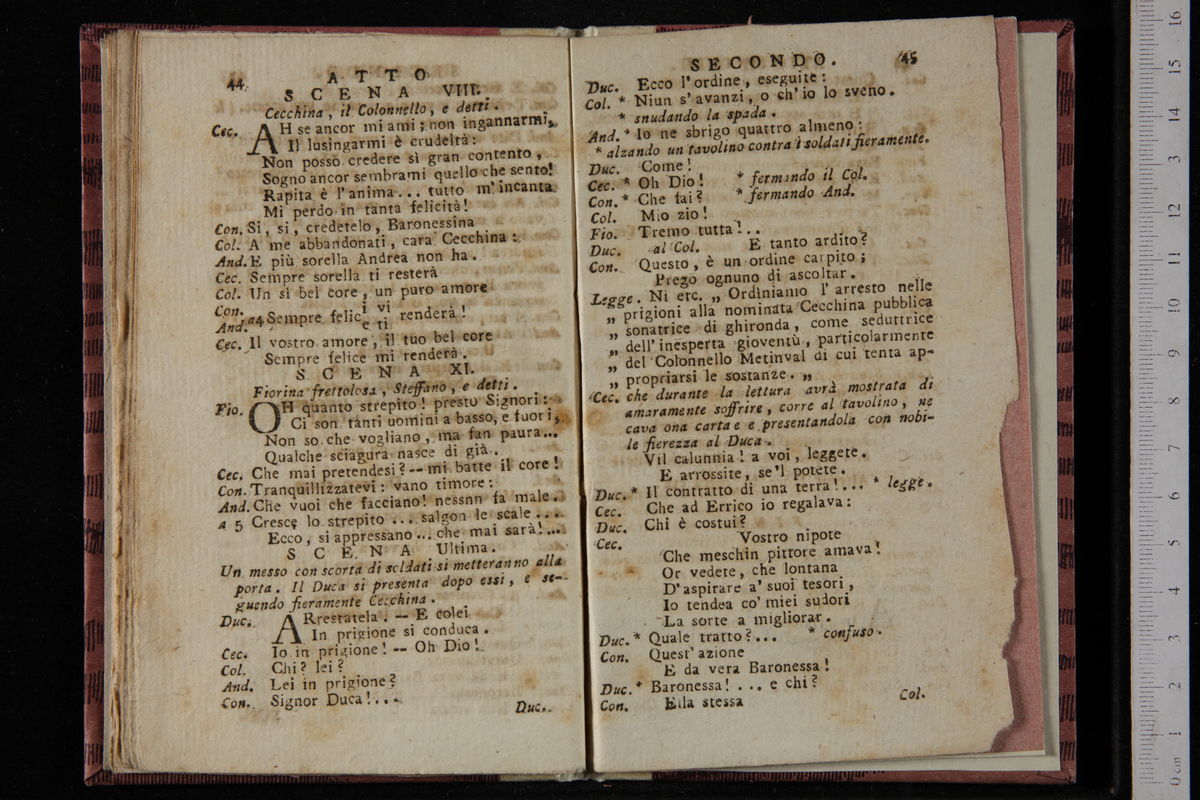 44
ATTO
SCENA VIII.
Cecchina, il Colonnello, e detti.
Cec. AH se ancor mi ami; non ingannarmi,
Il lusingarmi è crudeltà:
Non posso credere sì gran contento,
Sogno ancor sembrami quello che sento!
Rapita è l'anima... tutto m'incanta
Mi perdo in tanta felicità!
Con. Si, si, credetelo, Baronessina
Col. A me abbandonati, cara Cecchina:
And. E più sorella Andrea non ha.
Cec. Sempre sorella ti resterà
Col. Un sì bel core, un puro amore
Con. i vi
And. a4 Sempre felic e ti renderà!
Cec. Il vostro amore, il tuo bel core
Sempre felice mi renderà.
SCENA XI.
Fiorina frettolosa, Steffano, e detti.
Fio. OH quanto strepito! presto Signori:
Ci son tanti uomini a basso, e fuori,
Non so che vogliano, ma fan paura...
Qualche sciagura nasce di già.
Cec. Che mai pretendesi? -- mi batte il core!
Con. Tranquillizzatevi: vano timore:
And. Che vuoi che facciano! nessnn fa male.
a 5 Cresce lo strepito ... salgon le scale ...
Ecco, si appressano ... che mai sarà!...
SCENA Ultima.
Un messo con scorta di soldati si metteranno alla
porta. Il Duca si presenta dopo essi, e se-
guendo fieramente Cecchina.
Duc. ARrestatela. -- E colei
In prigione si conduca.
Cec. Io in prigione! -- Oh Dio!
Col. Chi? lei?
And. Lei in prigione?
Con. Signor Duca!...
Duc.
SECONDO. 45
Duc. Ecco l'ordine, eseguite:
Col. * Niun s'avanzi, o ch'io lo sveno.
* snudando la spada.
And. * Io ne sbrigo quattro almeno:
* alzando un tavolino contra i soldati fieramente.
Duc. Come!
Cec. * Oh Dio! * fermando il Col.
Con. * Che fai? * fermando And.
Col. Mio zio!
Fio. Tremo tutta!..
Duc. al Col. E tanto ardito?
Con. Questo, è un ordine carpito;
Prego ognuno di ascoltar.
Legge. Ni etc. „ Ordiniamo l'arresto nelle
„ prigioni alla nominata Cecchina pubblica
„ sonatrice di ghironda, come seduttrice
„ dell'inesperta gioventù, particolarmente
„ del Colonnello Metinval di cui tenta ap-
„ propriarsi le sostanze. „
Cec. che durante la lettura avrà mostrata di
amaramente soffrire, corre al tavolino, ne
cava ona carta e e presentandola con nobi-
le fierezza al Duca.
Vil calunnia! a voi, leggete.
E arrossite, se'l potete.
Duc. * Il contratto di una terra!... * legge.
Cec. Che ad Errico io regalava:
Duc. Chi è costui?
Cec. Vostro nipote
Che meschin pittore amava!
Or vedete, che lontana
D'aspirare a' suoi tesori,
Io tendea co' miei sudori
La sorte a migliorar.
Duc. * Quale tratto?... * confuso.
Con. Quest'azione
E da vera Baronessa!
Duc. * Baronessa! ... e chi?
Con. Ella stessa
Col.